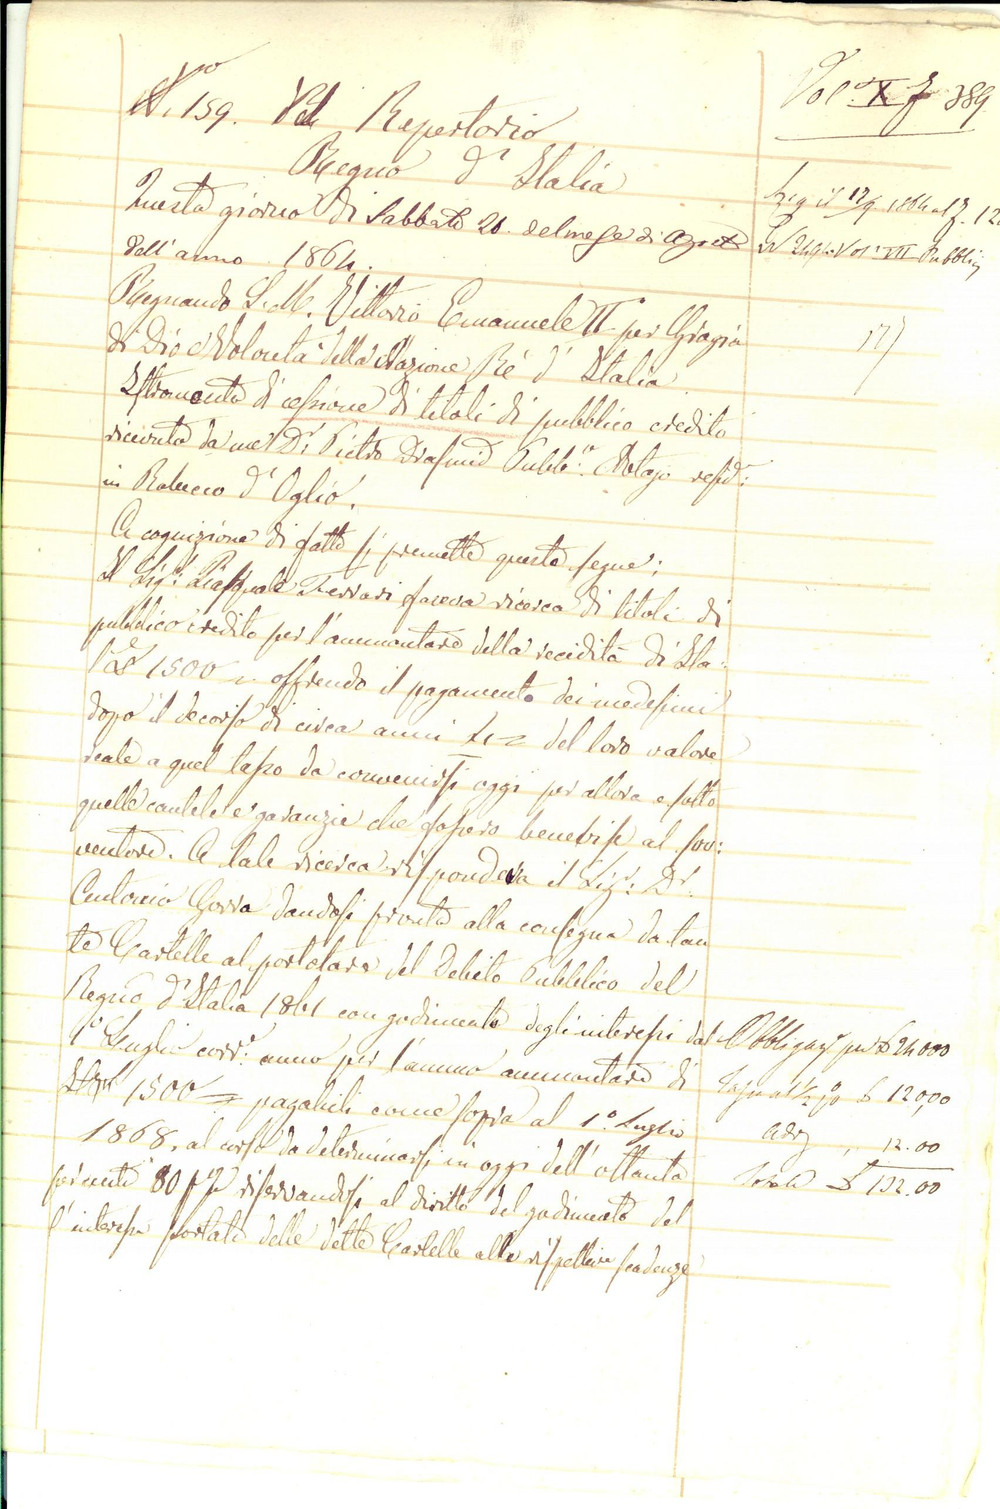 N.º 159. del Repertorio
Regno d'Italia
Questo giorno di Sabbato 20. del mese di Agosto
dell'anno 1864.
Regnando S. M. Vittorio Emanuele II per Grazia
di Dio e Volontà della Nazione Rè d'Italia
Istromento di cessione di titoli di pubblico credito
ricevuto da me Dr Pietro Pubb.º Notajo resid.e
in Robecco d'Oglio.
A cognizione di fatto si premette quanto segue:
Il Sig.r Pasquale Ferrari faceva ricerca di titoli di
pubblico credito per l'ammontare della reddità di Ita:
L. 1500 offrendo il pagamento dei medesimi
dopo il decorso di circa anni del loro valore
reale a quel lasso da convenirsi oggi per allora e sotto
quelle cautele e garanzie che fossero benevise al sov:
ventore. A tale ricerca rispondeva il Sig.r Dr.
Antonio Gorra dandosi pronto alla consegna da tan
te Cartelle al portatore del Debito Pubblico del
Regno d'Italia 1861 con godimento degli interessi dal
1º Luglio corr.e anno per l'annuo ammontare di
1500 pagabili come sopra al 1º Luglio
1868, al corso da determinarsi in oggi dell'ottanta
per cento 80 p% riservandosi al diritto del godimento del
l'interesse portato delle dette Cartelle alle rispettive scadenze
Vol.º X f 389
Reg il 12/9 1864 al f. 12
N 249 Vol. VII Pubblici
177
Obbligaz per £ 24000
Tassa al ½ % £ 120,00
12.00
Totale £ 132.00